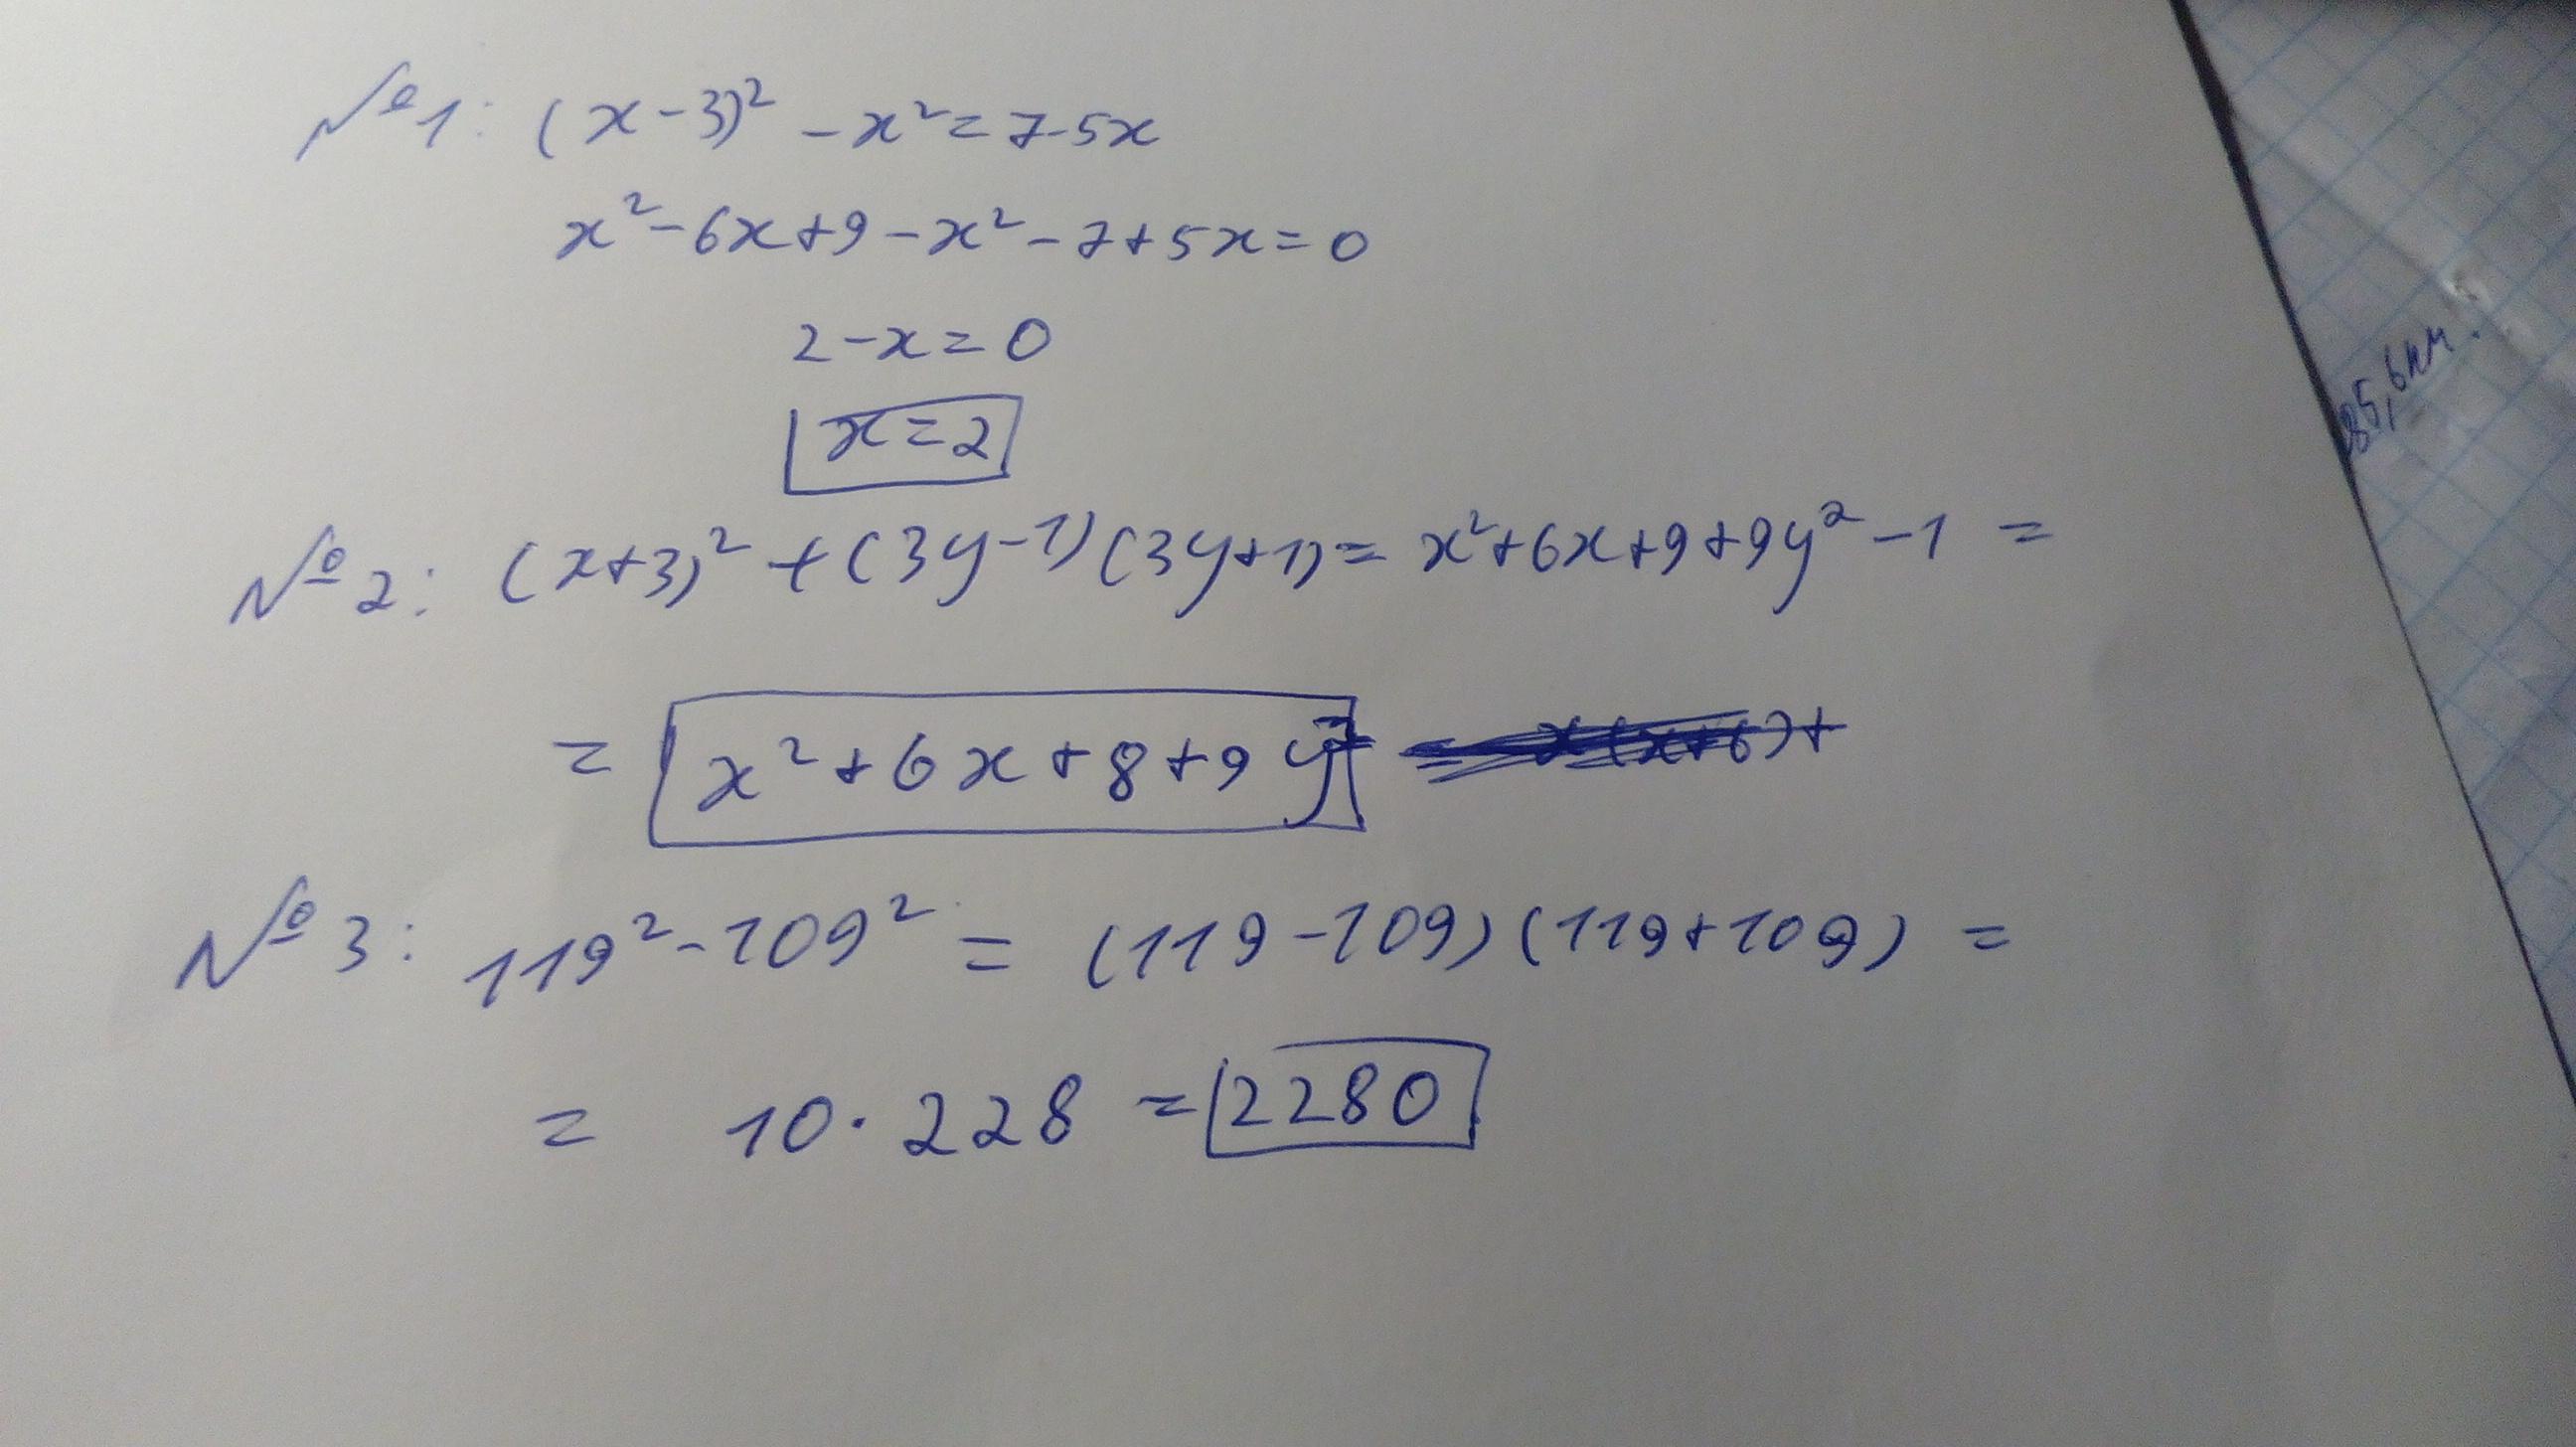 №1: (x-3)² - x² = 7-5x
x² - 6x + 9 - x² - 7 + 5x = 0
2 - x = 0
x = 2
№2: (x+3)² + (3y-1)(3y+1) = x² + 6x + 9 + 9y² - 1 =
= x² + 6x + 8 + 9y²
№3: 119² - 109² = (119-109)(119+109) =
= 10 · 228 = 2280
85,6км.